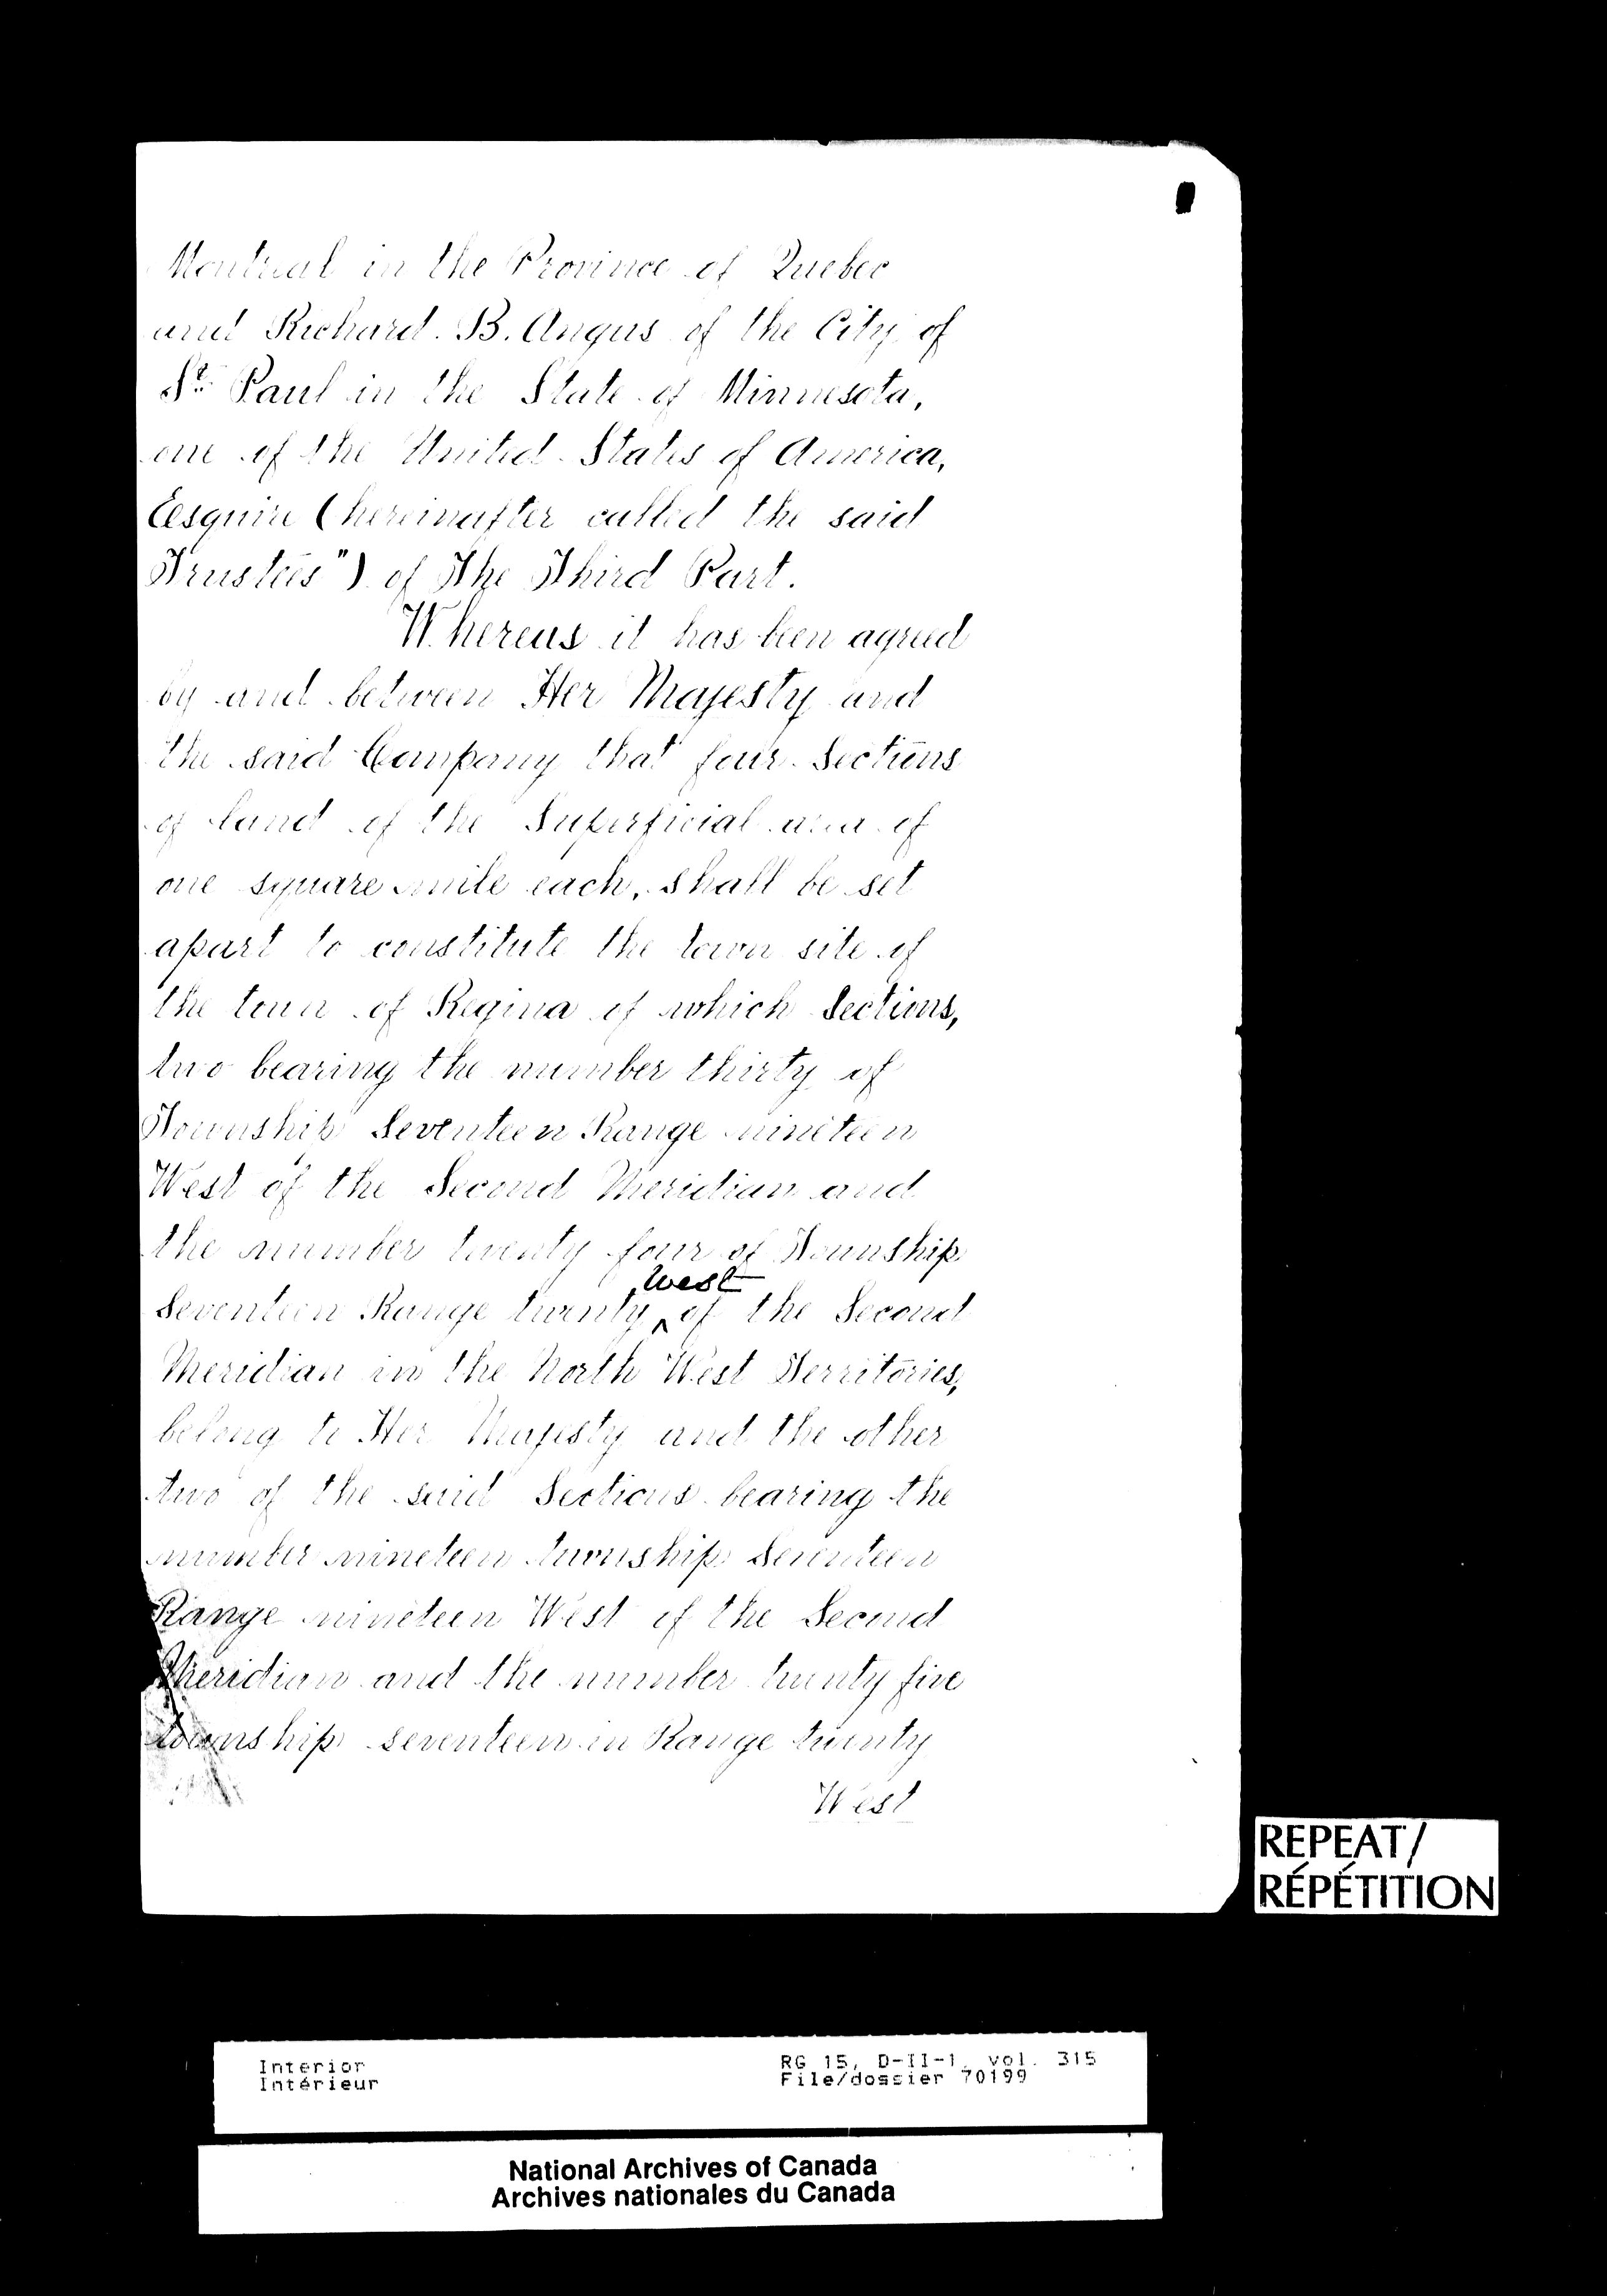 Montreal in the Province of Quebec
and Richard. B. Angus of the City of
St. Paul in the State of Minnesota,
one of the United States of America,
Esquire (hereinafter called the said
Trustees") of The Third Part.
Whereas it has been agreed
by and between Her Majesty and
the said Company that four Sections
of land of the Superficial area of
one square mile each, shall be set
apart to constitute the town site of
the town of Regina of which Sections,
two bearing the number thirty of
Township Seventeen Range nineteen
West of the Second Meridian and
the number twenty four of Township
Seventeen Range twenty ^ west of the Second
Meridian in the North West Territories,
belong to Her Majesty and the other
two of the said Sections bearing the
number nineteen township Seventeen
Range nineteen West of the Second
Meridian and the number twenty five
township seventeen in Range twenty
West
REPEAT/
RÉPÉTITION
Interior
Intérieur
RG 15, D-II-1, vol. 315
File/dossier 70199
National Archives of Canada
Archives nationales du Canada